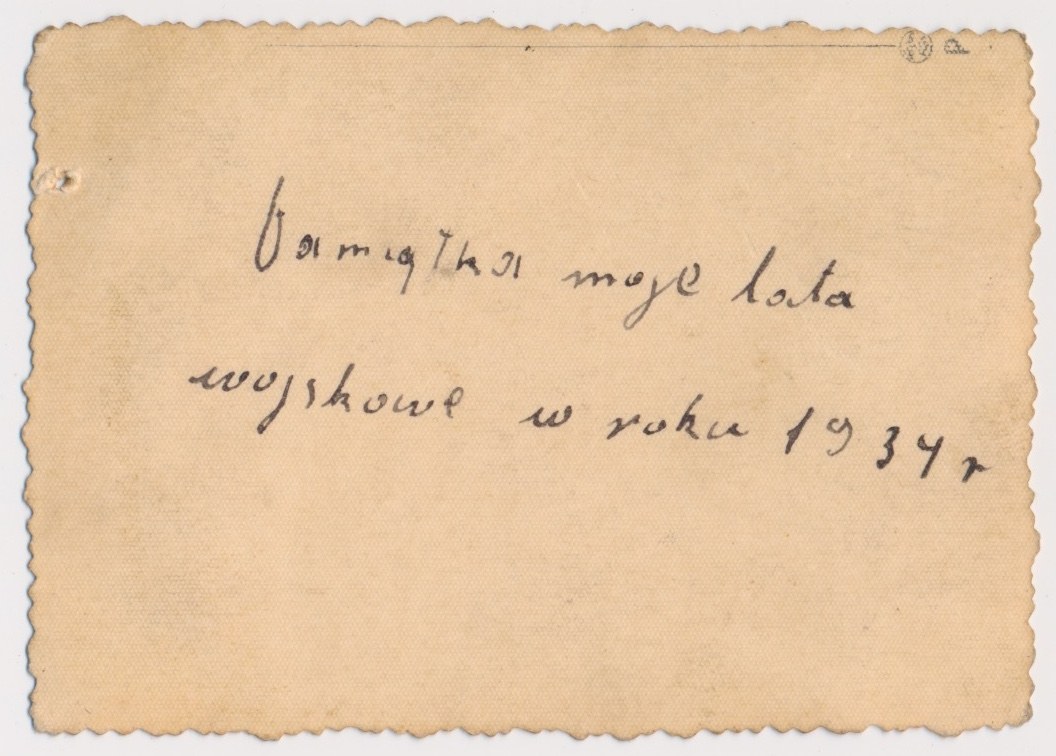 Pamiątka moje lata
wojskowe w roku 1934 r